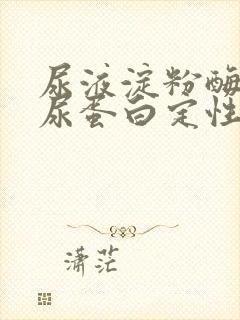 尿液淀粉酶
尿蛋白定性
潇茫